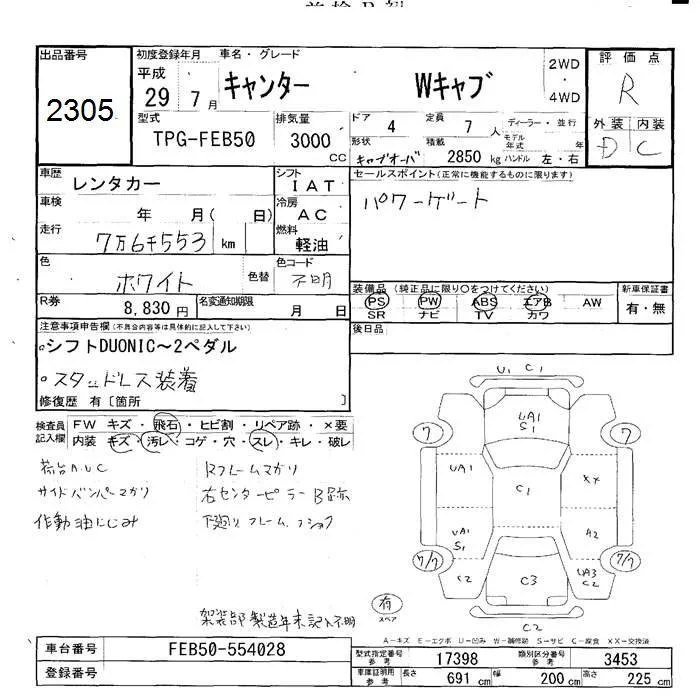 出品番号
2305
初度登録年月
平成
29 7 月
車名・グレード
キャンター Wキャブ
2WD
・
4WD
評価点
R
外装 内装
D C
型式
TPG-FEB50
排気量
3000
CC
ドア
4
定員
7 人
ディーラー・並行
モデル年式 年
形状
キャブオーバ
積載
2850 kg
ハンドル 左・右
車歴
レンタカー
シフト
IAT
セールスポイント(正常に機能するものに限ります)
パワーゲート
車検
年 月( 日)
冷房
AC
走行
7万6千553 km
燃料
軽油
色
ホワイト
色替
色コード
不明
装備品 (純正品に限り○をつけてください)
PS PW ABS エアB AW
SR ナビ TV カワ
新車保証書
有・無
R券
8,830 円
名変通知期限
月 日
後日品
注意事項申告欄(不具合内容等は具体的に記入して下さい)
○シフトDUONIC~2ペダル
・スタッドレス装着
修復歴 有〔箇所 〕
検査員記入欄
FW キズ・飛石・ヒビ割・リペア跡・×要
内装 キズ・汚レ・コゲ・穴・スレ・キレ・破レ
荷台A.U.C
サイドバンパーマガリ
作動油にじみ
Rフレームマガリ
右センターピラーB跡
下廻りフレーム
架装部製造年未記入不明
U1 C1
UA1
S1
7
7
UA1
C1
XX
UA1
S1
A2
7/7
7/7
C2
C3
UA3
C2
有
スペア
C2
A-キズ E-エクボ U-凹み W-補修跡 S-サビ C-腐食 XX-交換済
車台番号
FEB50-554028
登録番号
型式指定番号
参考
17398
類別区分番号
参考
3453
車庫証明用
参考
長さ
691 cm
幅
200 cm
高さ
225 cm